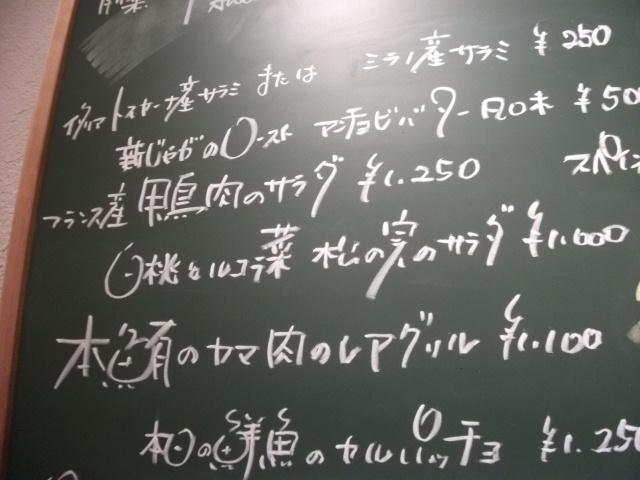 前菜
イタリアトスカーナ産サラミ または ミラノ産サラミ ¥250
新じゃがのロースト アンチョビバター風味 ¥50
フランス産 鴨肉のサラダ ¥1.250 スペイン
白桃とルコラ菜 松の実のサラダ ¥1.000
本鮪のカマ肉のレアグリル ¥1.100
本日の鮮魚のカルパッチョ ¥1.250